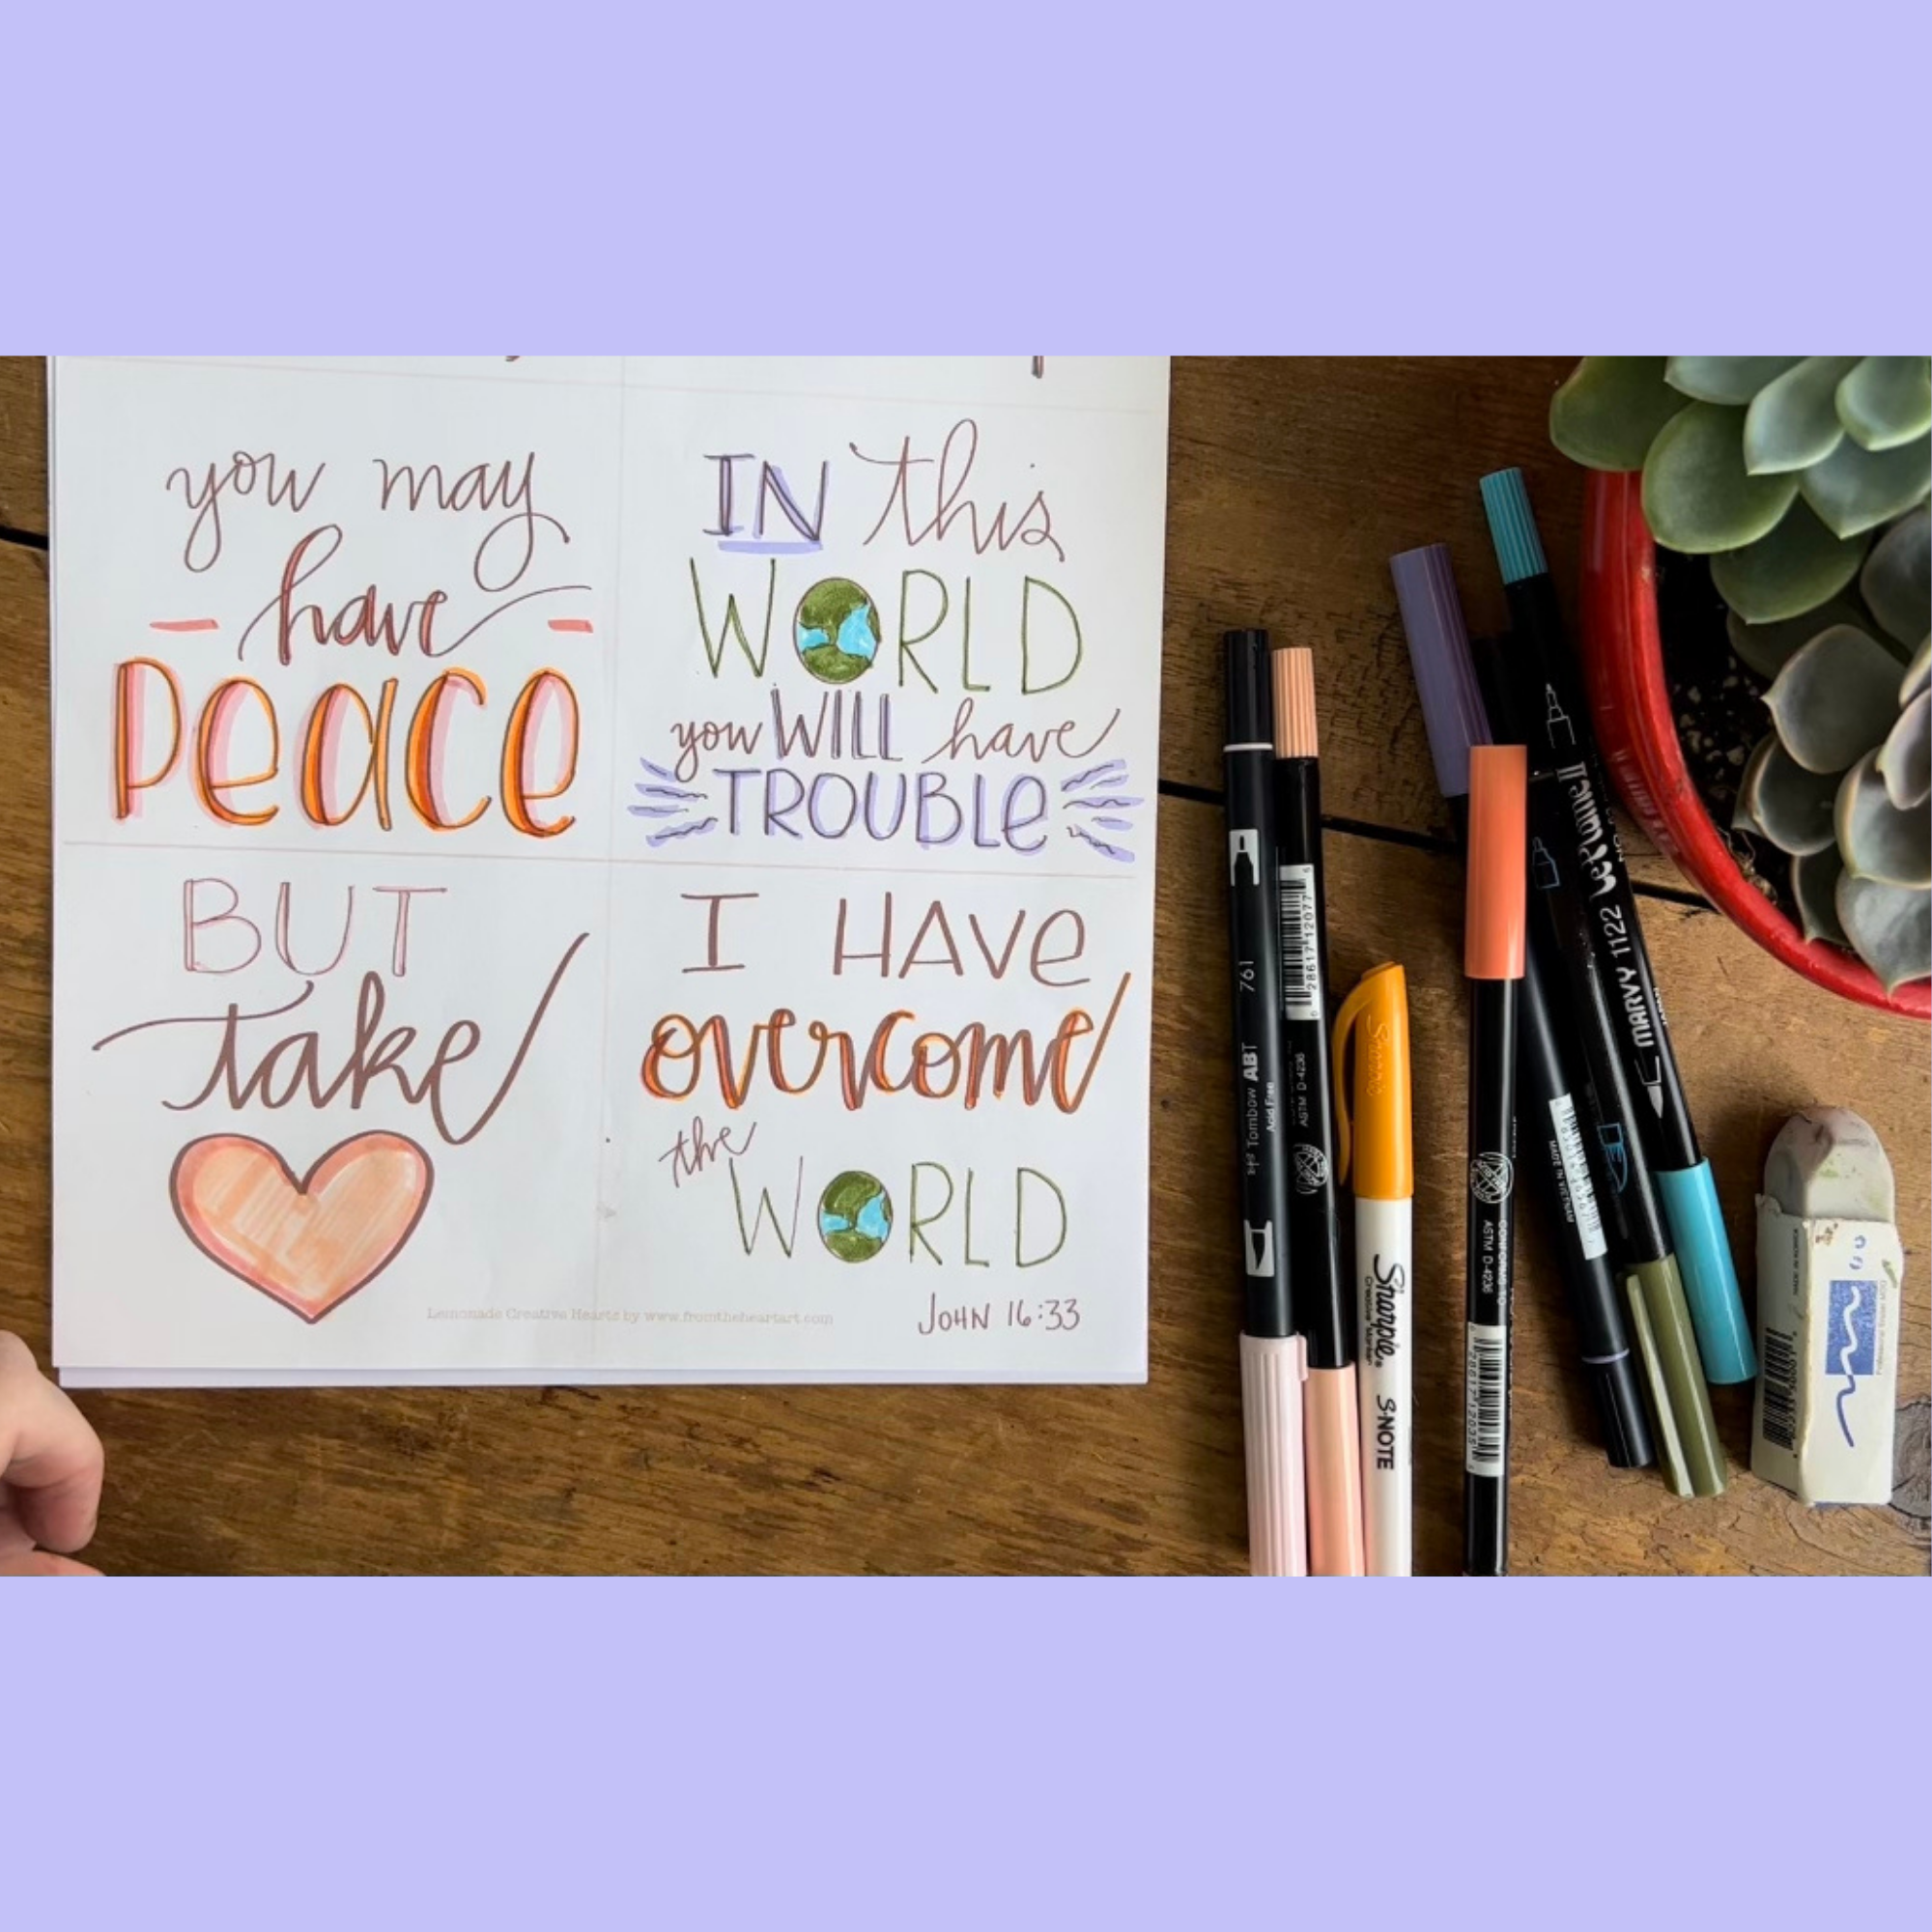 you may
have
peace
IN this
WORLD
you WILL have
TROUBLe
BUT
take
I HAVe
overcome
the
WORLD
JOHN 16:33
Lemonade Creative Hearts by www.fromtheheartart.com
761
Tombow ABT
Acid Free
ASTM D-4236
Sharpie
Creative Marker
S·NOTE
CONFORMS TO
ASTM D-4236
MADE IN VIETNAM
MARVY 1122 LePlume II